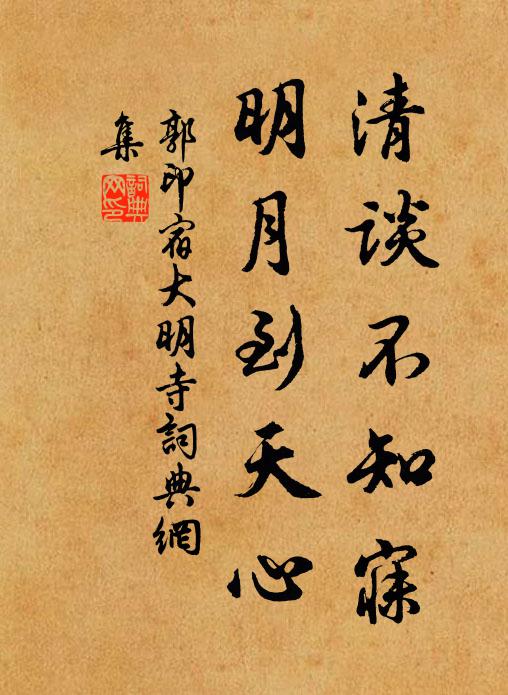 清談不知寐
明月到天心
郭印宿大明寺詞典網
集
詞典网印